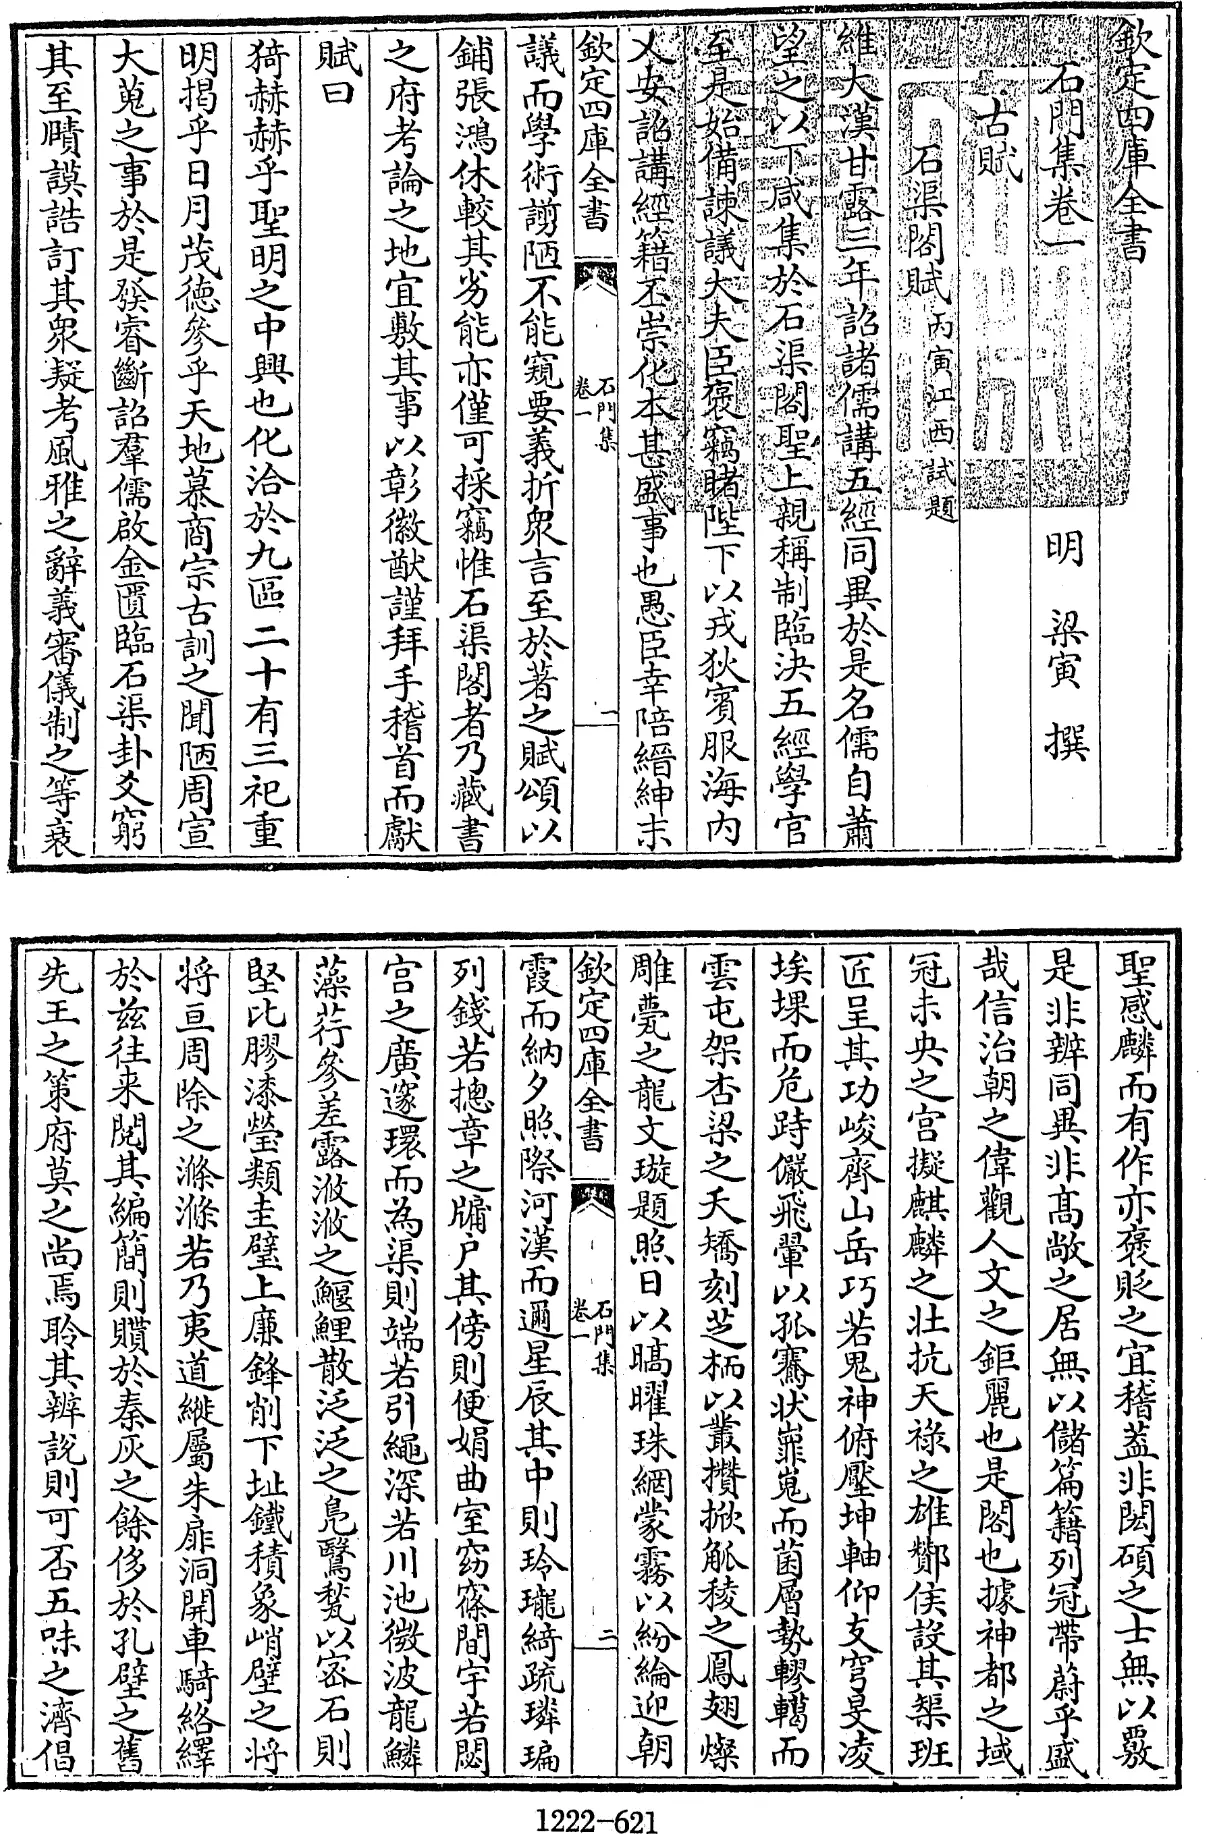 欽定四庫全書
石門集卷一
明 梁寅 撰
古賦
石渠閣賦 丙寅江西試題
維大漢甘露三年詔諸儒講五經同異於是名儒自蕭
望之以下咸集於石渠閣聖上親稱制臨決五經學官
至是始備諫議大夫臣褒竊睹陛下以戎狄賓服海内
乂安詔講經籍丕崇化本甚盛事也愚臣幸陪縉紳末
欽定四庫全書
石門集
卷一
一
議而學術謭陋不能窺要義折衆言至於著之賦頌以
鋪張鴻休較其劣能亦僅可採竊惟石渠閣者乃藏書
之府考論之地宜敷其事以彰徽猷謹拜手稽首而獻
賦曰
猗赫赫乎聖明之中興也化洽於九區二十有三祀重
明揭乎日月茂德參乎天地慕商宗古訓之聞陋周宣
大蒐之事於是發睿斷詔羣儒啟金匱臨石渠卦爻窮
其至賾謨誥訂其衆疑考風雅之辭義審儀制之等衰
聖感麟而有作亦褒貶之宜稽蓋非閎碩之士無以覈
是非辨同異非髙敞之居無以儲篇籍列冠帶蔚乎盛
哉信治朝之偉觀人文之鉅麗也是閣也據神都之域
冠未央之宫擬麒麟之壯抗天祿之雄酇侯設其榘班
匠呈其功峻齊山岳巧若鬼神俯壓坤軸仰支穹旻凌
埃堁而危跱儼飛翬以孤騫狀嶵嵬而菌層勢轇轕而
雲屯架杏梁之夭矯刻芝栭以叢攢掀觚稜之鳳翅燦
雕甍之龍文璇題照日以暠曜珠網蒙霧以紛綸迎朝
欽定四庫全書
石門集
卷一
二
霞而納夕照際河漢而邇星辰其中則玲瓏綺疏璘㻞
列錢若摠章之牖户其傍則便娟曲室窈窱間宇若閟
宫之廣邃環而為渠則端若引繩深若川池微波龍鱗
藻荇參差露浟浟之鰋鯉散泛泛之鳧鷖甃以宻石則
堅比膠漆瑩類圭璧上亷鋒削下址鐵積象峭壁之將
將亘周除之滌滌若乃夷道縱屬朱扉洞開車騎絡繹
於兹往来閱其編簡則贖於秦灰之餘侈於孔壁之舊
先王之策府莫之尚焉聆其辨説則可否五味之濟倡
1222-621